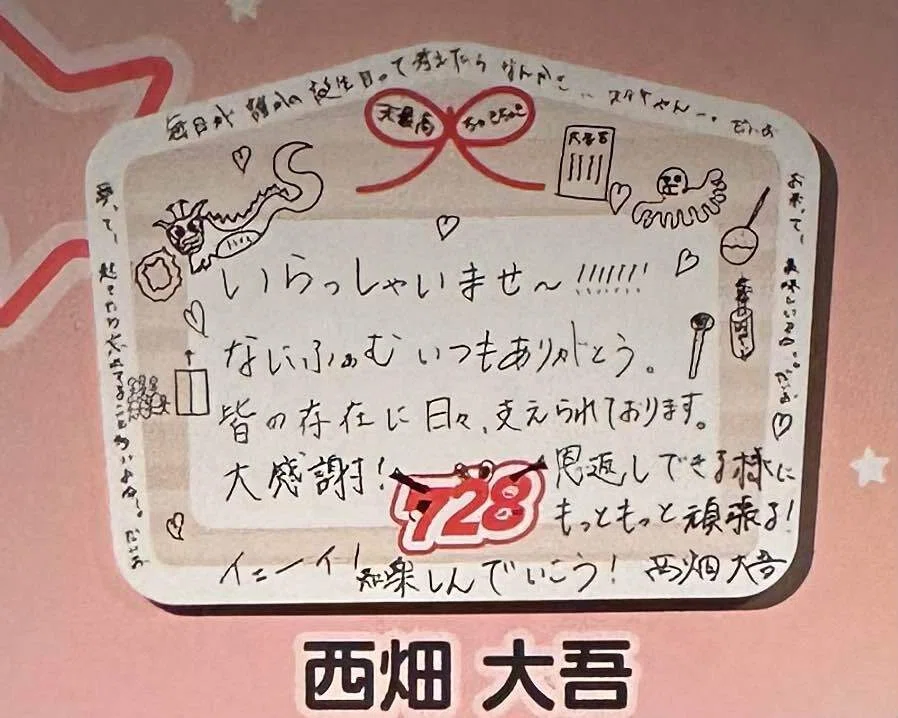 毎日が誰かの誕生日って考えたらなんかこーステキやんー。だいお
大最高
大吉百
いらっしゃいませ〜!!!!!!!
なにふぁむ いつもありがとう。
皆の存在に日々、支えられております。
大感謝!
728
恩返しできる様に
もっともっと頑張る!
イェーイ!
楽しんでいこう!
西畑大吾
夢って、起きたら忘れてることも多いよね〜。だいお
お米って、美味しいよね。。だいお
西畑 大吾